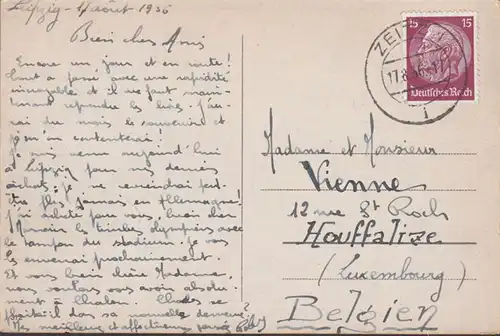 Leipzig - 17 août 1936
Bien chers Amis
Encore un jour et en route!
Tout a passé avec une rapidité
incroyable et il va faut main-
tenant reprendre les livres. J'au-
rai du mois le souvenir et
je m'en contenterai!
Je suis venu aujourd'hui
à Leipzig pour mes derniers
achats; je ne reviendrai peut-
être plus jamais en Allemagne!
J'ai acheté pour vous, bien cher
Monsieur les timbres olympiques avec
le tampon du stadium. Je vous
les enverrai prochainement.
Et vous bien chère Madame,
nous voulons vous avoir absolu-
ment à Chalon. Charles se
plaît-il dans sa nouvelle demeure?
Mes meilleures et affectueuses
15 15
Deutsches Reich
ZEITZ
17.8.36
i
Madame et Monsieur
Vienne
12 rue St Roch
Houffalize
(Luxembourg)
Belgien